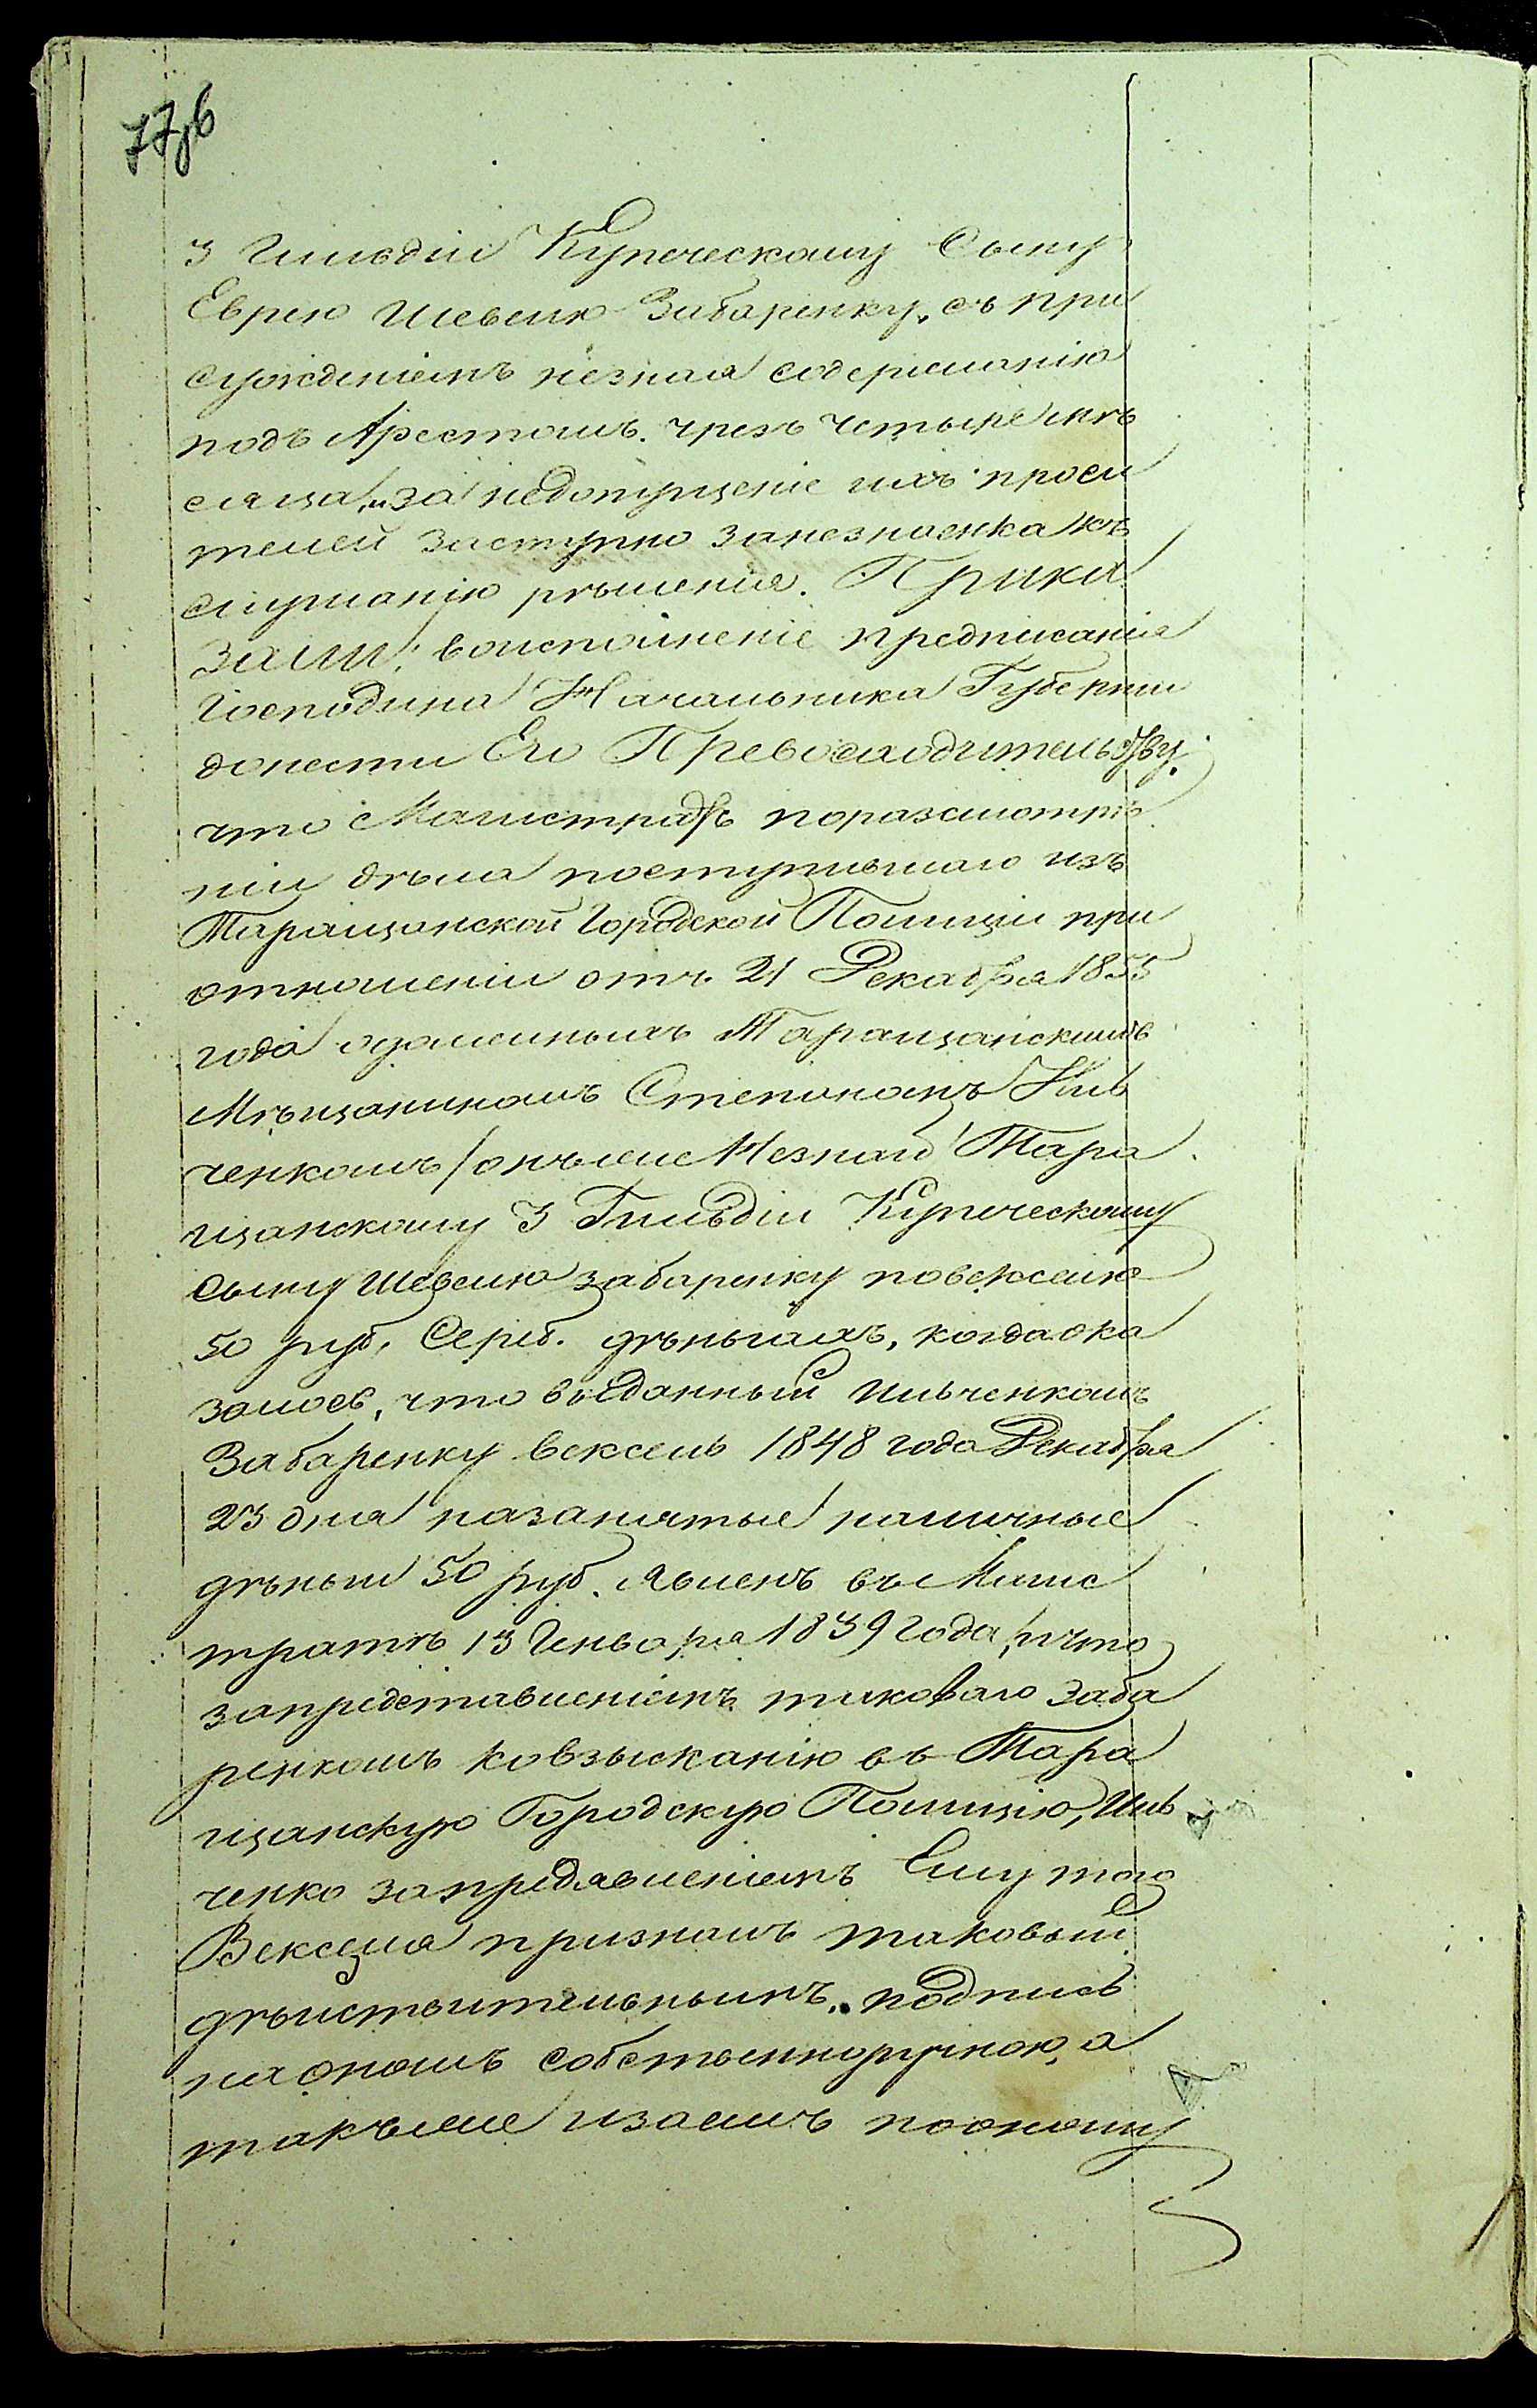 77об
3 Гильдіи Купеческому Сыну
Еврею Шевелю Забаренку, съ при
сужденіемъ Незная содержанію
подъ Арестомъ чрезъ четыре мѣ
сяца, и за недопущеніе ихъ проси
телей заступно за Незнаенка къ
слушанію рѣшенія. Прика
зали: воисполненіе предписанія
Господина Начальника Губерніи
донести Его Превосходительству,
что Магистратъ поразсмотрѣ
ніи дѣла поступившаго изъ
Таращанской Городской Полиціи при
отношеніи отъ 21 Декабря 1855
года о должныхъ Таращанскимъ
Мѣщаниномъ Степаномъ Иль
ченкомъ /онъже Незнай/ Тара
щанскому 3 Гильдіи Купеческому
сыну Шевелю Забаренку повекселю
50 руб. Сереб. дѣньгахъ, когда ока
залось, что выданный Ильченкомъ
Забаренку вексель 1848 года Декабря
23 дня назанятые наличные
дѣньги 50 руб. Явленъ въ Магис
тратѣ 13 Геньваря 1839 года, и что
запредставленіемъ таковаго Заба
ренкомъ ковзысканію въ Тара
щанскую Городскую Полицію, Иль
ченко запредявленіемъ Ему того
Векселя призналъ таковый
дѣйствительнымъ, подпись
на ономъ собственноручною, а
такъже изаемъ поономy